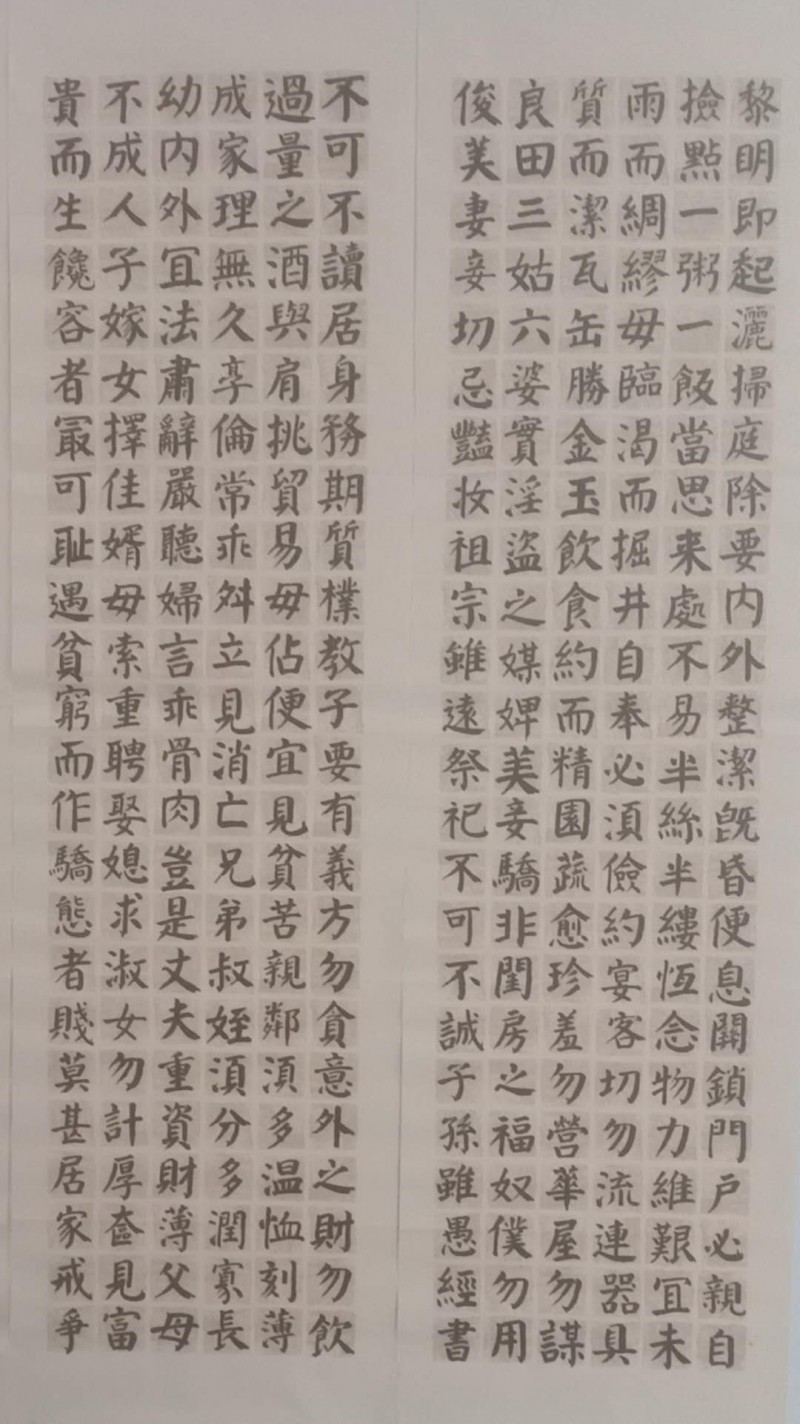 黎明即起灑掃庭除要内外整潔旣昏便息關鎖門戶必親自
撿點一粥一飯當思来處不易半絲半縷恆念物力維艱冝未
雨而綢繆毋臨渴而掘井自奉必須儉約宴客切勿流連器具
質而潔瓦缶勝金玉飲食約而精園蔬愈珍羞勿營華屋勿謀
良田三姑六婆實淫盜之媒婢美妾驕非閨房之福奴僕勿用
俊美妻妾切忌豔妝祖宗雖遠祭祀不可不誠子孫雖愚經書
不可不讀居身務期質樸教子要有義方勿貪意外之財勿飲
過量之酒與肩挑貿易毋佔便宜見貧苦親鄰須多温恤刻薄
成家理無久享倫常乖舛立見消亡兄弟叔姪須分多潤寡長
幼内外冝法肅辭嚴聽婦言乖骨肉豈是丈夫重資財薄父母
不成人子嫁女擇佳婿毋索重聘娶媳求淑女勿計厚奩見富
貴而生饞容者冣可耻遇貧窮而作驕態者賤莫甚居家戒爭